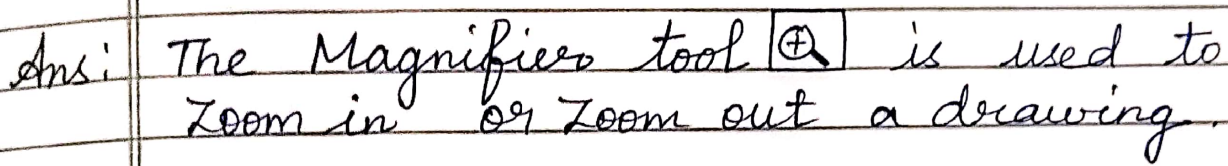 Ans: The Magnifier tool is used to
Zoom in or Zoom out a drawing.